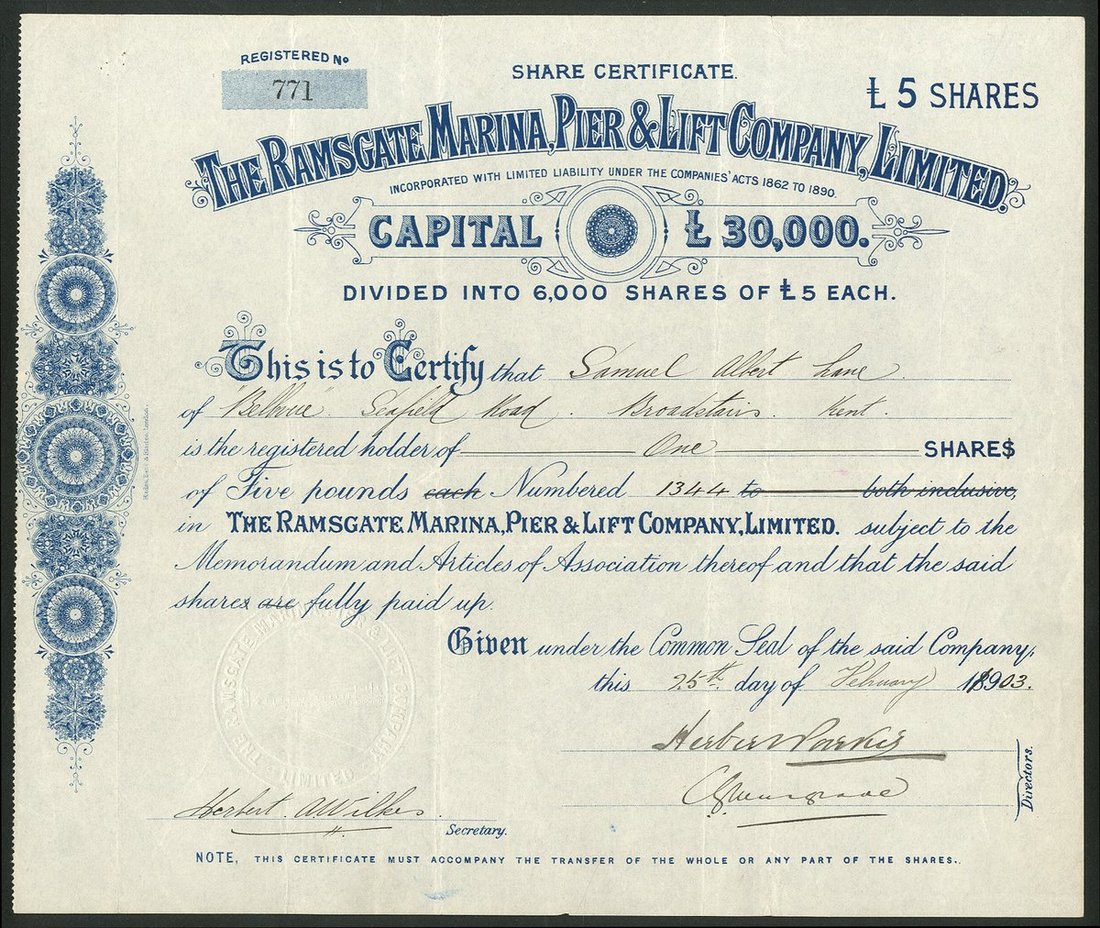 REGISTERED No
771
SHARE CERTIFICATE.
£ 5 SHARES
THE RAMSGATE MARINA, PIER & LIFT COMPANY, LIMITED.
INCORPORATED WITH LIMITED LIABILITY UNDER THE COMPANIES' ACTS 1862 TO 1890.
CAPITAL £ 30,000.
DIVIDED INTO 6,000 SHARES OF £5 EACH.
This is to Certify that Samuel Albert Lane
of Seafield Road. Broadstairs. Kent.
is the registered holder of One SHARES
of Five pounds each Numbered 1344 to both inclusive,
in THE RAMSGATE MARINA, PIER & LIFT COMPANY, LIMITED. subject to the
Memorandum and Articles of Association thereof and that the said
shares are fully paid up.
Given under the Common Seal of the said Company,
this 25th day of February 1903.
THE RAMSGATE MARINA, PIER & LIFT COMPANY LIMITED
Directors.
Herbert A Wilkes
Secretary.
NOTE, THIS CERTIFICATE MUST ACCOMPANY THE TRANSFER OF THE WHOLE OR ANY PART OF THE SHARES.